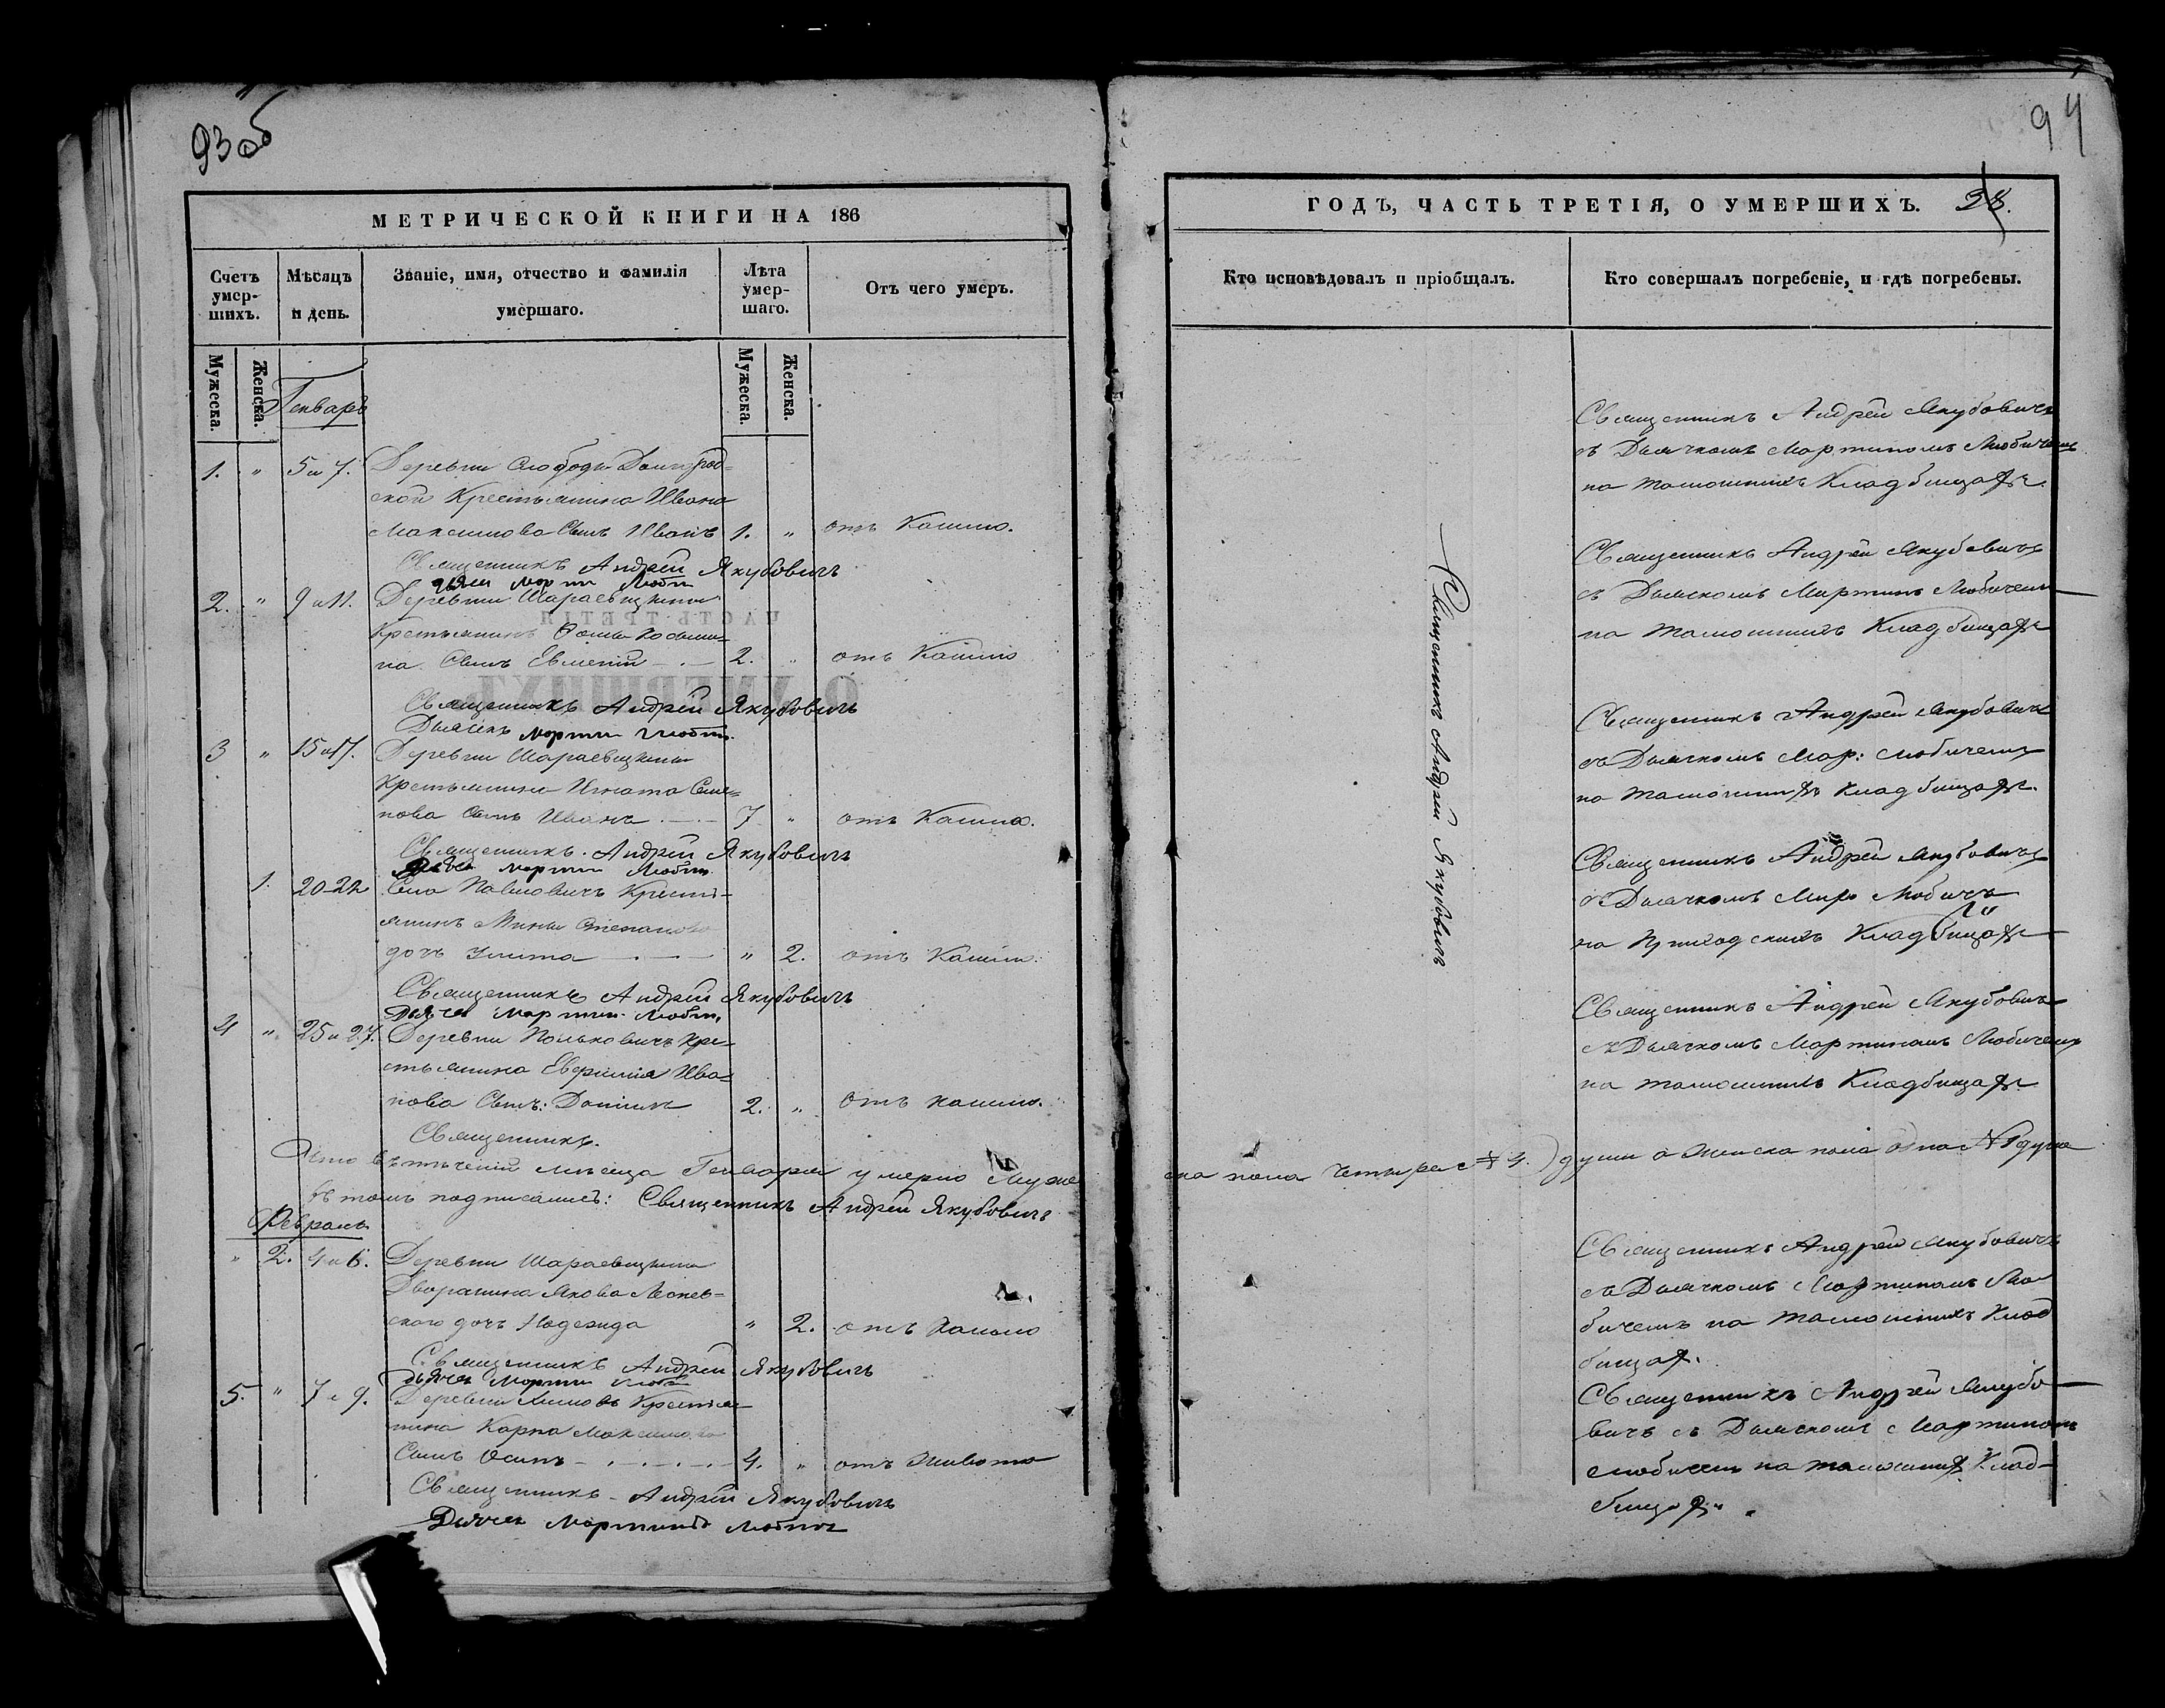 93 об
МЕТРИЧЕСКОЙ КНИГИ НА 186
Счетъ умер-шихъ.
Мѣсяцъ и день.
Званіе, имя, отчество и фамилія умершаго.
Лѣта умер-шаго.
Отъ чего умеръ.
Мужеска.
Женска.
Мужеска.
Женска.
Генварь
1. " 5 и 7. Деревни Слободы
ской Крестьянина Ивана
Максимова Сынъ Иванъ 1. " отъ Кашлю.
Священникъ Андрей Якубовичъ
2. " 9 и 11. Деревни
Крестьянинъ Фомы
на Сынъ Евменій 2. " отъ Кашлю
Священникъ Андрей Якубовичъ
Дьячекъ Мартин
3 " 15 и 17. Деревни
Крестьянина Игната Семе=
нова Сынъ Иванъ 7 " отъ Кашлю.
Священникъ Андрей Якубовичъ
1. 20-22 Села Павловичъ Кресть-
янинъ Мины Степанова
дочъ Улита " 2. отъ Кашлю.
Священникъ Андрей Якубовичъ
4 " 25 и 27. Деревни Польковичъ Кре-
стьянина Ива=
нова Сынъ: Даніилъ 2. " Отъ кашлю.
Священникъ.
Что въ теченіи мѣсяца Генваря умерло Муже
ска пола четыре # 4.) души а Женска пола одна N 1 душа
въ томъ подписались: Священникъ Андрей Якубовичъ
Февраль
" 2. 4 и 6. Деревни
Дворянина Якова
скаго дочъ Надежда " 2. отъ Кашлю
Священникъ Андрей Якубовичъ
5. " 7 и 9. Деревни Крестья
нина Карпа Максимова
Сынъ Осипъ 4. " отъ Живота
Священникъ Андрей Якубовичъ
Дьячек Мартинъ
94
ГОДЪ, ЧАСТЬ ТРЕТІЯ, О УМЕРШИХЪ. 38.
Кто исповѣдовалъ и пріобщалъ.
Кто совершалъ погребеніе, и гдѣ погребены.
Священникъ Андрей Якубовичъ
Священникъ Андрей Якубовичъ
съ Дьячкомъ Мартиномъ Любичемъ
на тамошнихъ Кладбищахъ.
Священникъ Андрей Якубовичъ
съ Дьячкомъ Мартин Любичем
на тамошнихъ Кладбищахъ
Священникъ Андрей Якубовичъ
съ Дьячкомъ Мар: Любичемъ
на тамошнихъ Кладбищахъ.
Священникъ Андрей Якубовичъ
съ Дьячкомъ Любичъ
на Приходскихъ Кладбищахъ
Священникъ Андрей Якубовичъ
съ Дьячкомъ Мартиномъ Любичемъ
на тамошнихъ Кладбищахъ.
Священникъ Андрей Якубовичъ
съ Дьячкомъ Мартиномъ Лю
бичемъ на тамошнихъ Клад
бищах.
Священникъ Андрей Якубо
вичъ съ Дьячкомъ Мартиномъ
Любичемъ на тамошних Клад-
бищах.